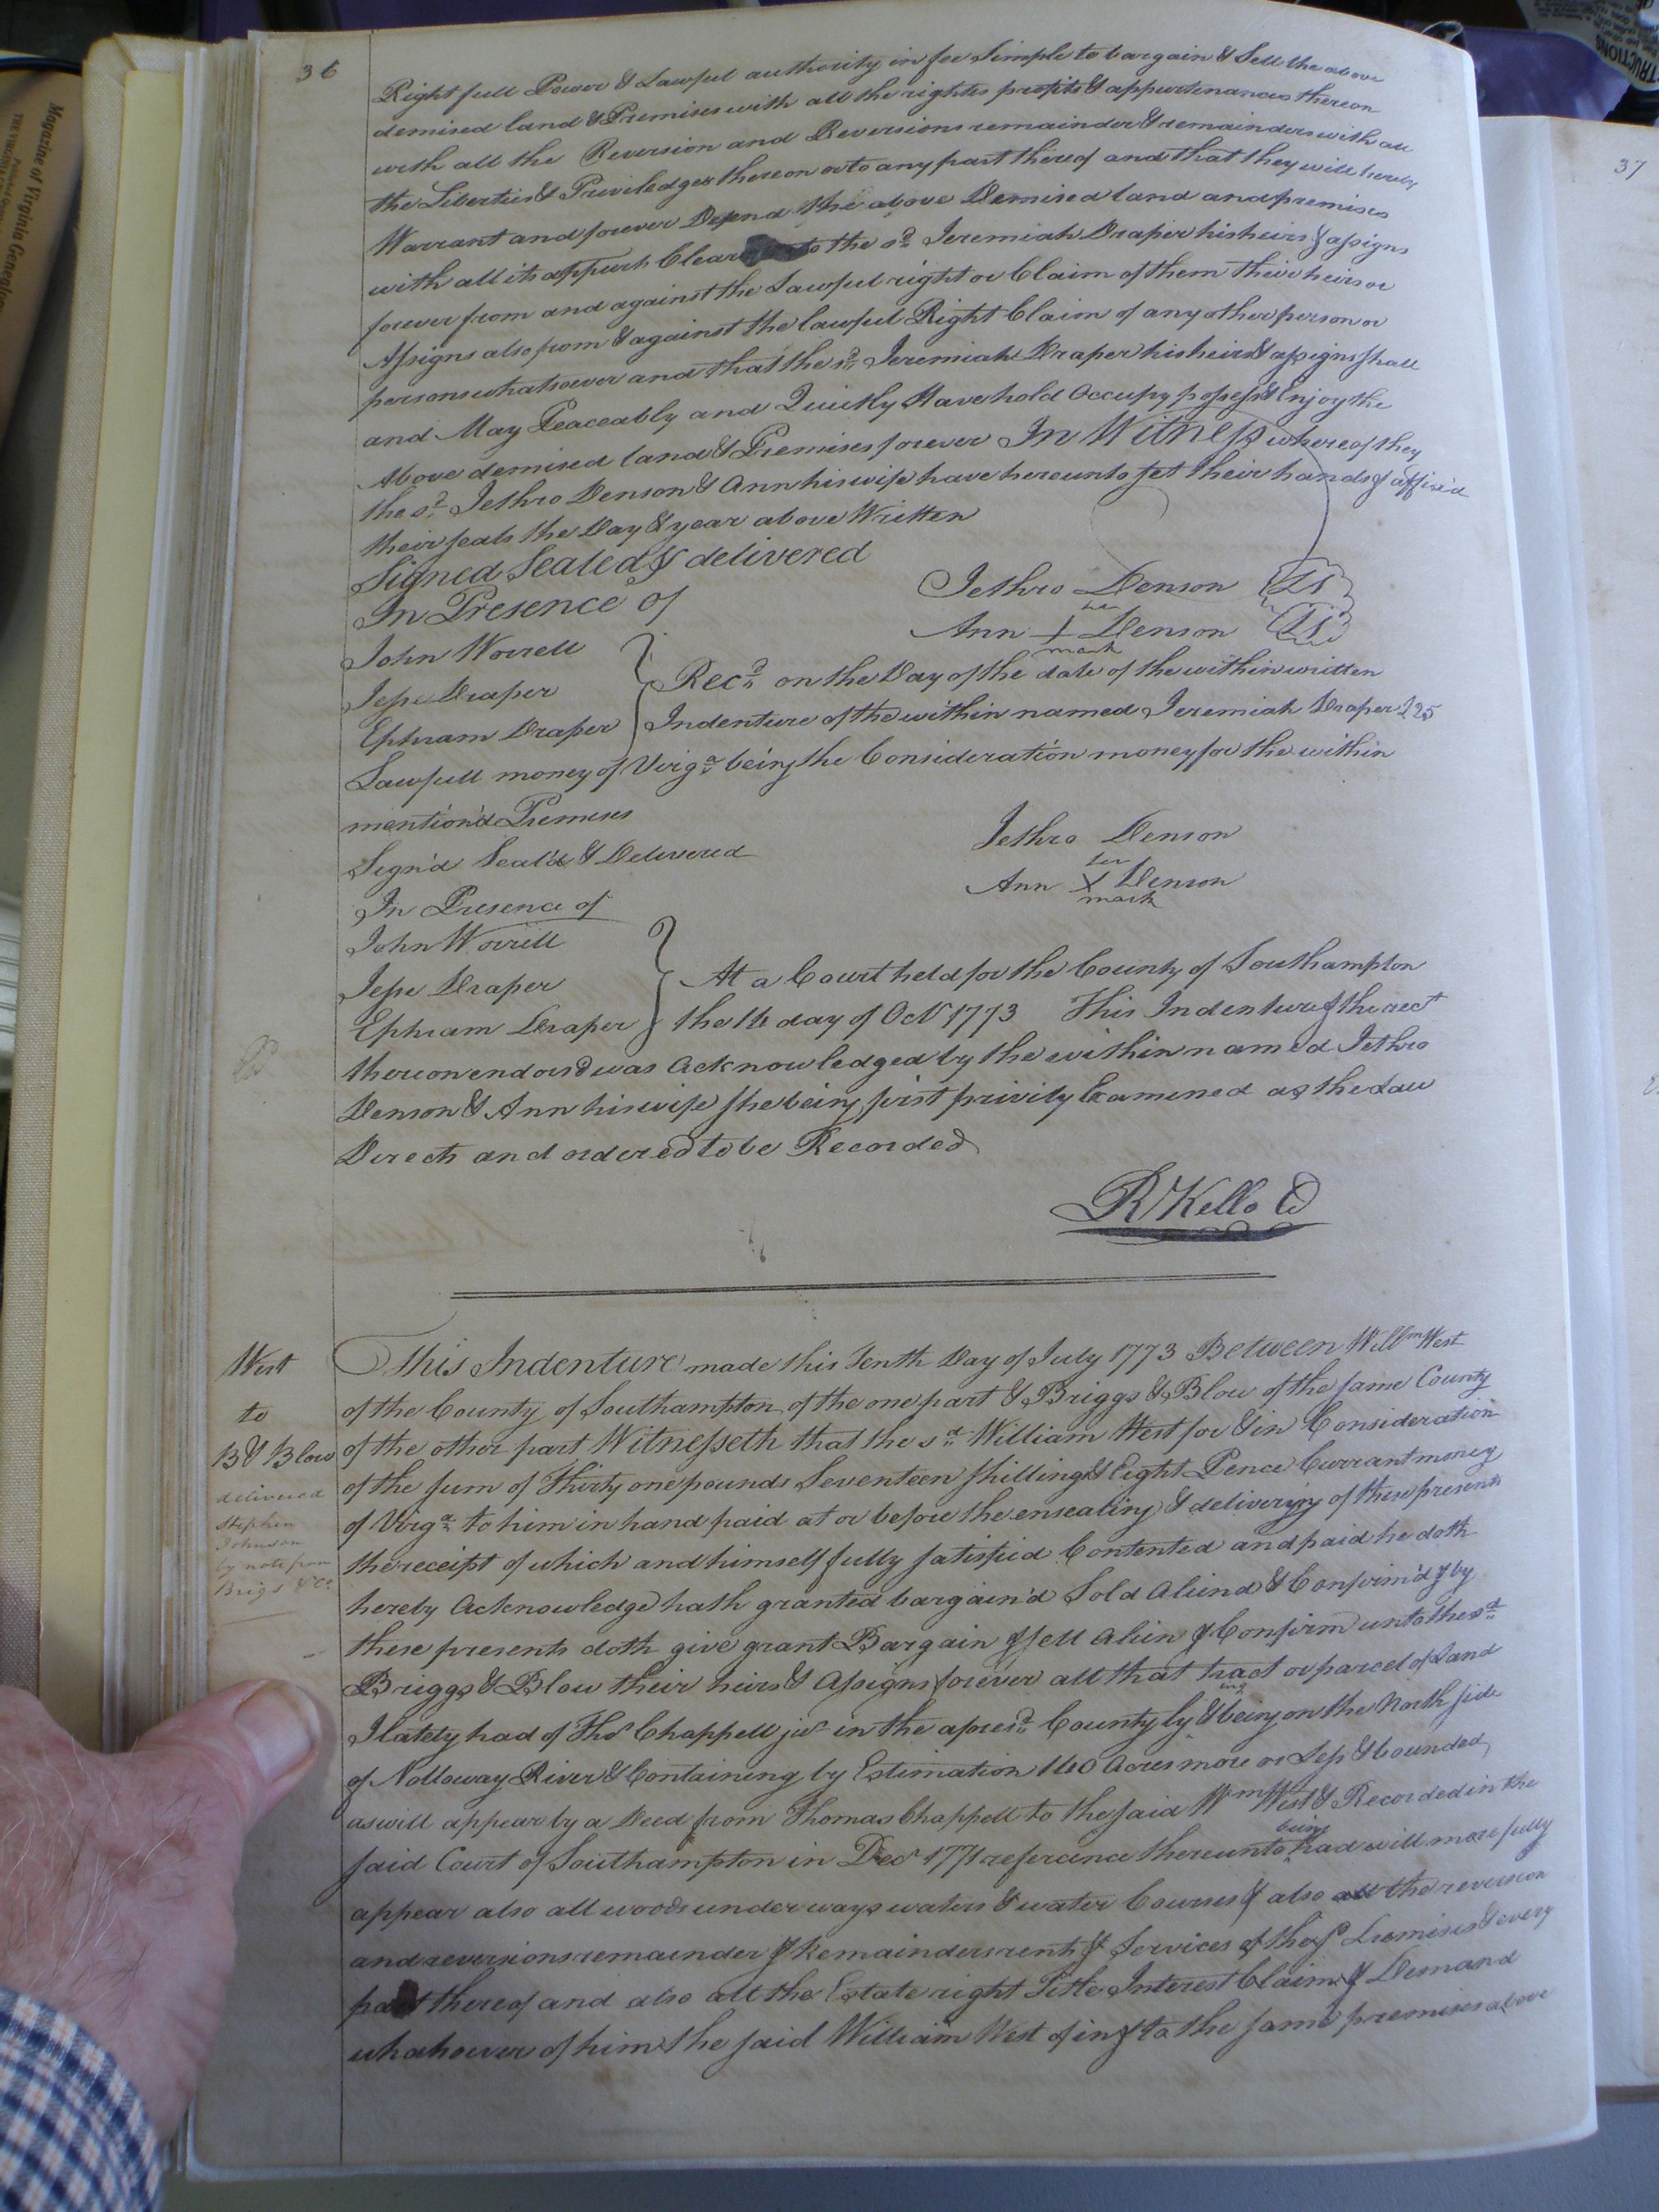 36
Right full Power & Lawful authority in fee Simple to bargain & Sell the above
demised land & Premises with all the rights profits & appurtenances thereon
with all the Reversion and Reversions remainder & remainders with all
the Liberties & Priviledges thereon or to any part thereof and that they will hereby
Warrant and forever Defend the above Demised land and premises
with all its appurts Clear to the sd. Jeremiah Draper his heirs & assigns
forever from and against the Lawful right or Claim of them their heirs or
Assigns also from & against the lawful Right Claim of any other person or
persons whatsoever and that the sd. Jeremiah Draper his heirs & assigns shall
and May Peaceably and Quietly Have hold Occupy possess & Enjoy the
Above demised land & Premises forever In Witness whereof they
the sd. Jethro Denson & Ann his wife have hereunto set their hands & affix'd
their seals the Day & year above Written
Signed Sealed & delivered
In Presence of
Jethro Denson LS
Ann + Denson LS
her
mark
John Worrell
Jesse Draper
Ephram Draper
Recd. on the Day of the date of the within written
Indenture of the within named Jeremiah Draper £25
Lawfull money of Virga. being the Consideration money for the within
mention'd Premises
Sign'd Seal'd & Delivered
In Presence of
Jethro Denson
her
Ann X Denson
mark
John Worrill
Jesse Draper
Ephram Draper
At a Court held for the County of Southampton
the 14 day of Octr 1773 This Indenture & the rect
thereon endorsd was Acknowledged by the within named Jethro
Denson & Ann his wife she being first privily Examined as the Law
Directs and ordered to be Recorded
R Kello
West
to
B & Blow
delivered
Stephen
Johnson
by note from
Brigs & Co.
This Indenture made this Tenth Day of July 1773 Between Willm West
of the County of Southampton of the one part & Briggs & Blow of the same County
of the other part Witnesseth that the sd. William West for & in Consideration
of the sum of Thirty one pounds Seventeen shillings & Eight Pence Currant money
of Virga. to him in hand paid at or before the ensealing & delivery of these presents
the receipt of which and himself fully satisfied Contented and paid he doth
hereby Acknowledge hath granted bargain'd Sold Aliend & Confirm'd & by
these presents doth give grant Bargain & sell Alien & Confirm unto the sd.
Briggs & Blow their heirs & Assigns forever all that tract or parcel of Land
I lately had of Thos Chappell jur in the aforesd. County lying & being on the North side
of Nottoway River & Containing by Estimation 140 Acres more or Less & bounded
as will appear by a Deed from Thomas Chappell to the said Wm West & Recorded in the
said Court of Southampton in Decr 1771 referance thereunto being had will more fully
appear also all woods under ways waters & water Courses & also all the reversion
and reversions remainder & Remainders rents & Services of the sd Premises & every
part thereof and also all the Estate right Title Interest Claim & Demand
whatsoever of him the said William West of in & to the same premises above
37
Magazine of Virginia Genealogy